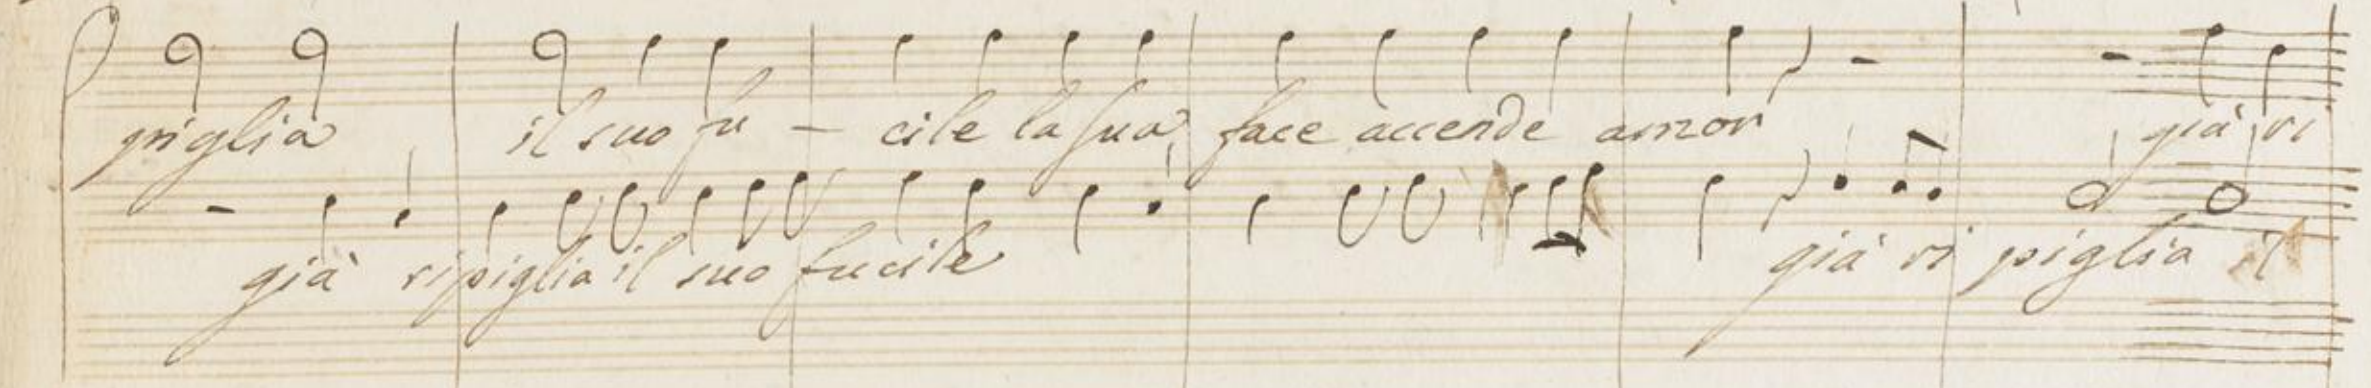 piglia il suo fu - cile la sua face accende amor già ri
già ripiglia il suo fucile già ri piglia il